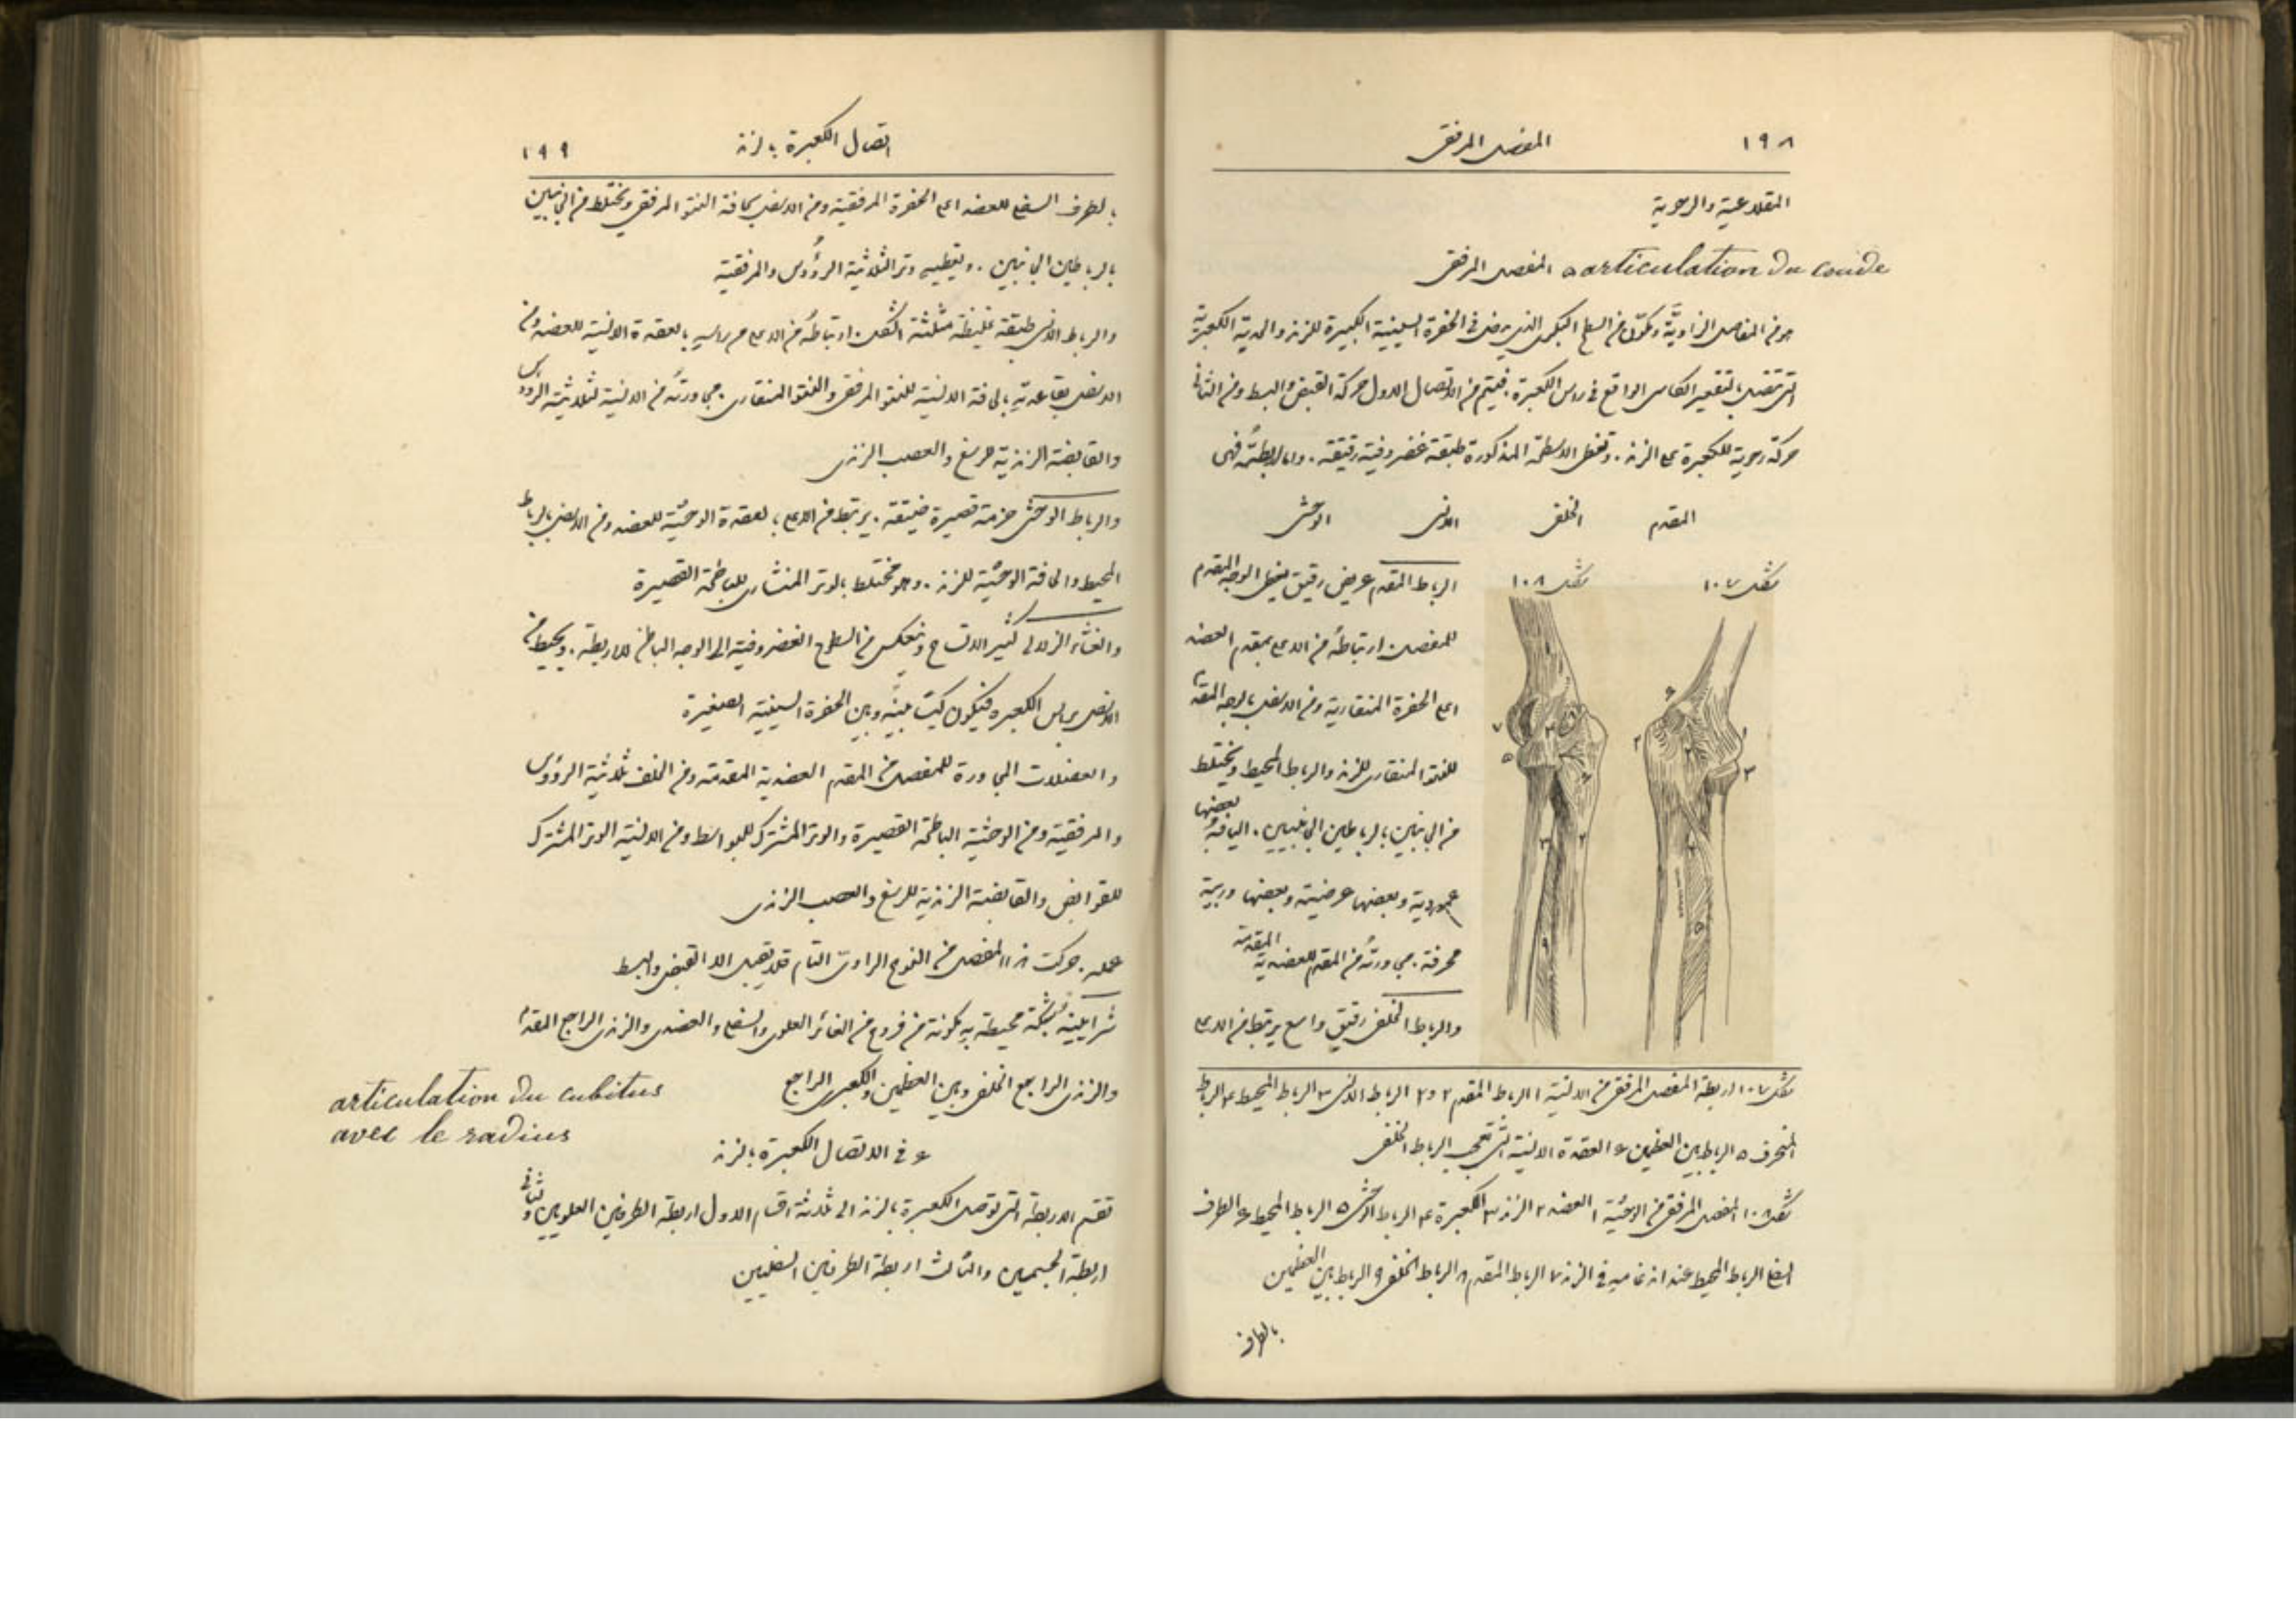 ١٩٨ المفصل المرفقي
المقلاعية والرحوية
٥ المفصل المرفقي articulation du coude
هو من المفاصل الزاويَّة ويتكوَّن من السطح البكري الذي في الحفرة السينية الكبيرة للزند والحدبة الكعبرية
التي تتصل بالتقعير الكاسي الواقع في راس الكعبرة. فيتم من الاتصال الاول حركة القبض والبسط ومن الثاني
حركة رحوية للكعبرة على الزند. وتغطى الاسطحة المذكورة طبقة غضروفية رقيقة. واما اربطتهُ فهي
المقدم الخلفي الانسي الوحشي
شكل ١٠٧ شكل ١٠٨
الرباط المقدم عريض رقيق يغطي الوجه المقدم
للمفصل. ارتباطهُ من الاعلى بمقدم العضد
اعلى الحفرة المنقارية ومن الاسفل بالوجه المقدم
للنتو المنقاري للزند والرباط المحيط ويختلط
من الجانبين بالرباطين الجانبيين. اليافهُ بعضها
عمودية وبعضها عرضية وبعضها وربية
محرفة. مجاورتهُ من المقدم للعضدية المقدمة
والرباط الخلفي رقيق واسع يرتبط من الاعلى
شكل ١٠٧ اربطة المفصل المرفقي من الانسية ١ الرباط المقدم ٢ و٢ الرباط الانسي ٣ الرباط المحيط ٤ الرباط
المنحرف ٥ الرباط بين العظمين ٦ العقدة الانسية التي تحجب الرباط الخلفي
شكل ١٠٨ المفصل المرفقي من الوحشية ١ العضد ٢ الزند ٣ الكعبرة ٤ الرباط الوحشي ٥ الرباط المحيط ٦ الطرف
السفلي الرباط المحيط عند اندغامه في الزند ٧ الرباط المقدم ٨ الرباط الخلفي ٩ الرباط بين العظمين
بالطرف
اتصال الكعبرة بالزند ١٩٩
بالطرف السفلي للعضد اعلى الحفرة المرفقية ومن الاسفل بحافة النتو المرفقي ويختلط من الجانبين
بالرباطين الجانبين. ويغطيهِ وتر الثلاثية الرؤُوس والمرفقية
والرباط الانسي طبقة غليظة مثلثة الشكل. ارتباطهُ من الاعلى من راسهِ بالعقدة الانسية للعضد ومن
الاسفل بقاعدتهِ بالحافة الانسية للنتو المرفقي والنتو المنقاري. مجاورتهُ من الانسية لثلاثية الرؤوس
والقابضة الزندية للرسغ والعصب الزندي
والرباط الوحشي حزمة قصيرة ضيقة. يرتبط من الاعلى بالعقدة الوحشية للعضد ومن الاسفل بالرباط
المحيط والحافة الوحشية للزند. وهو مختلط بالوتر المنشاري للباطحة القصيرة
والغشاء الزلالي كثير الاتساع وينعكس من السطوح الغضروفية الى الوجه الباطن للاربطة. ويحيط من
الاسفل براس الكعبرة فيتكون كيسًا بينهُ وبين الحفرة السينية الصغيرة
والعضلات المجاورة للمفصل من المقدم العضدية المقدمة ومن الخلف ثلاثية الرؤوس
والمرفقية ومن الوحشية الباطحة القصيرة والوتر المشترك للبواسط ومن الانسية الوتر المشترك
للقوابض والقابضة الزندية للرسغ والعصب الزندي
عمله. حركات هذا المفصل من النوع الزاوي التام فلا يقبل الا القبض والبسط
شرايينهُ شبكة محيطة بهِ مكونة من فروع من الغائر العلوي والسفلي والعضدي والزندي الراجع المقدم
والزندي الراجع الخلفي وبين العظمين والكعبري الراجع
articulation du cubitus
avec le radius
٦ في الاتصال الكعبرة بالزند
تقسم الاربطة التي توصل الكعبرة بالزند الى ثلاثة اقسام الاول اربطة الطرفين العلويين والثاني
اربطة الجسمين والثالث اربطة الطرفين السفليين